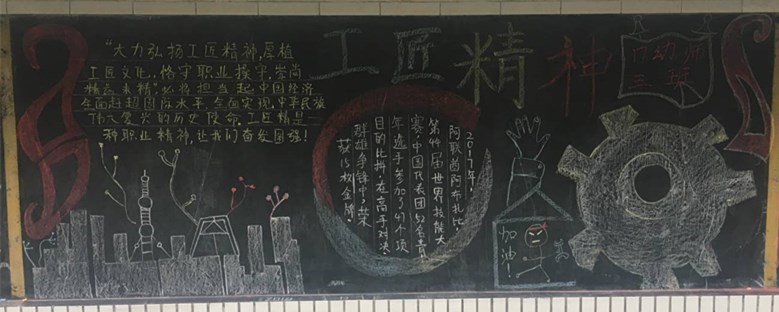 “大力弘扬工匠精神,厚植
工匠文化,恪守职业操守,崇尚
精益求精,必将担当起中国经济
全面赶超国际水平,全面实现中华民族
伟大复兴的历史使命,工匠精是一
种职业精神,让我们奋发图强!
工匠精神
2017年,
阿联酋阿布扎比
第44届世界技能大
赛,中国代表团52名青
年选手参加了47个项
目的比拼,在高手对决、
群雄争锋中,荣
获15枚金牌。
加油!